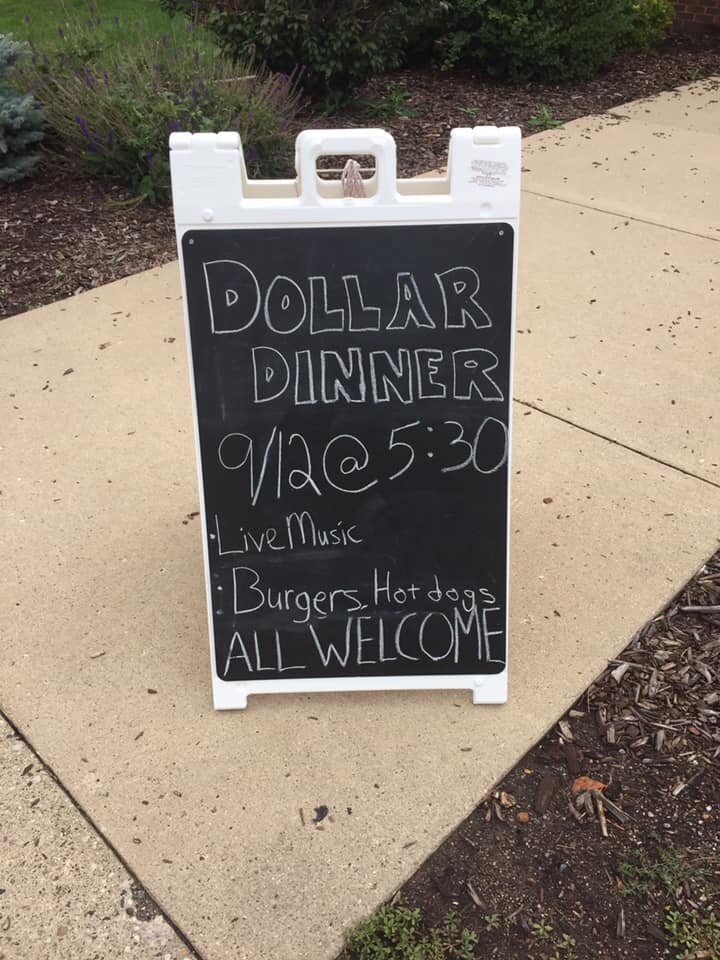 DOLLAR
DINNER
9/12 @ 5:30
• Live Music
• Burgers, Hot dogs
ALL WELCOME